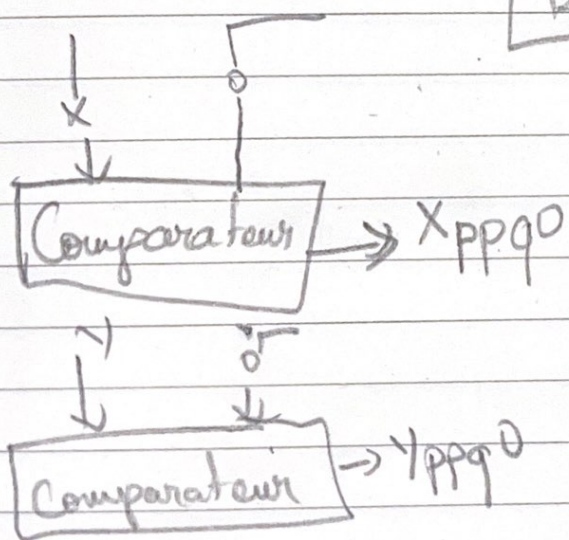 X 0
Comparateur Xppq0
Y 0
Comparateur Yppq0